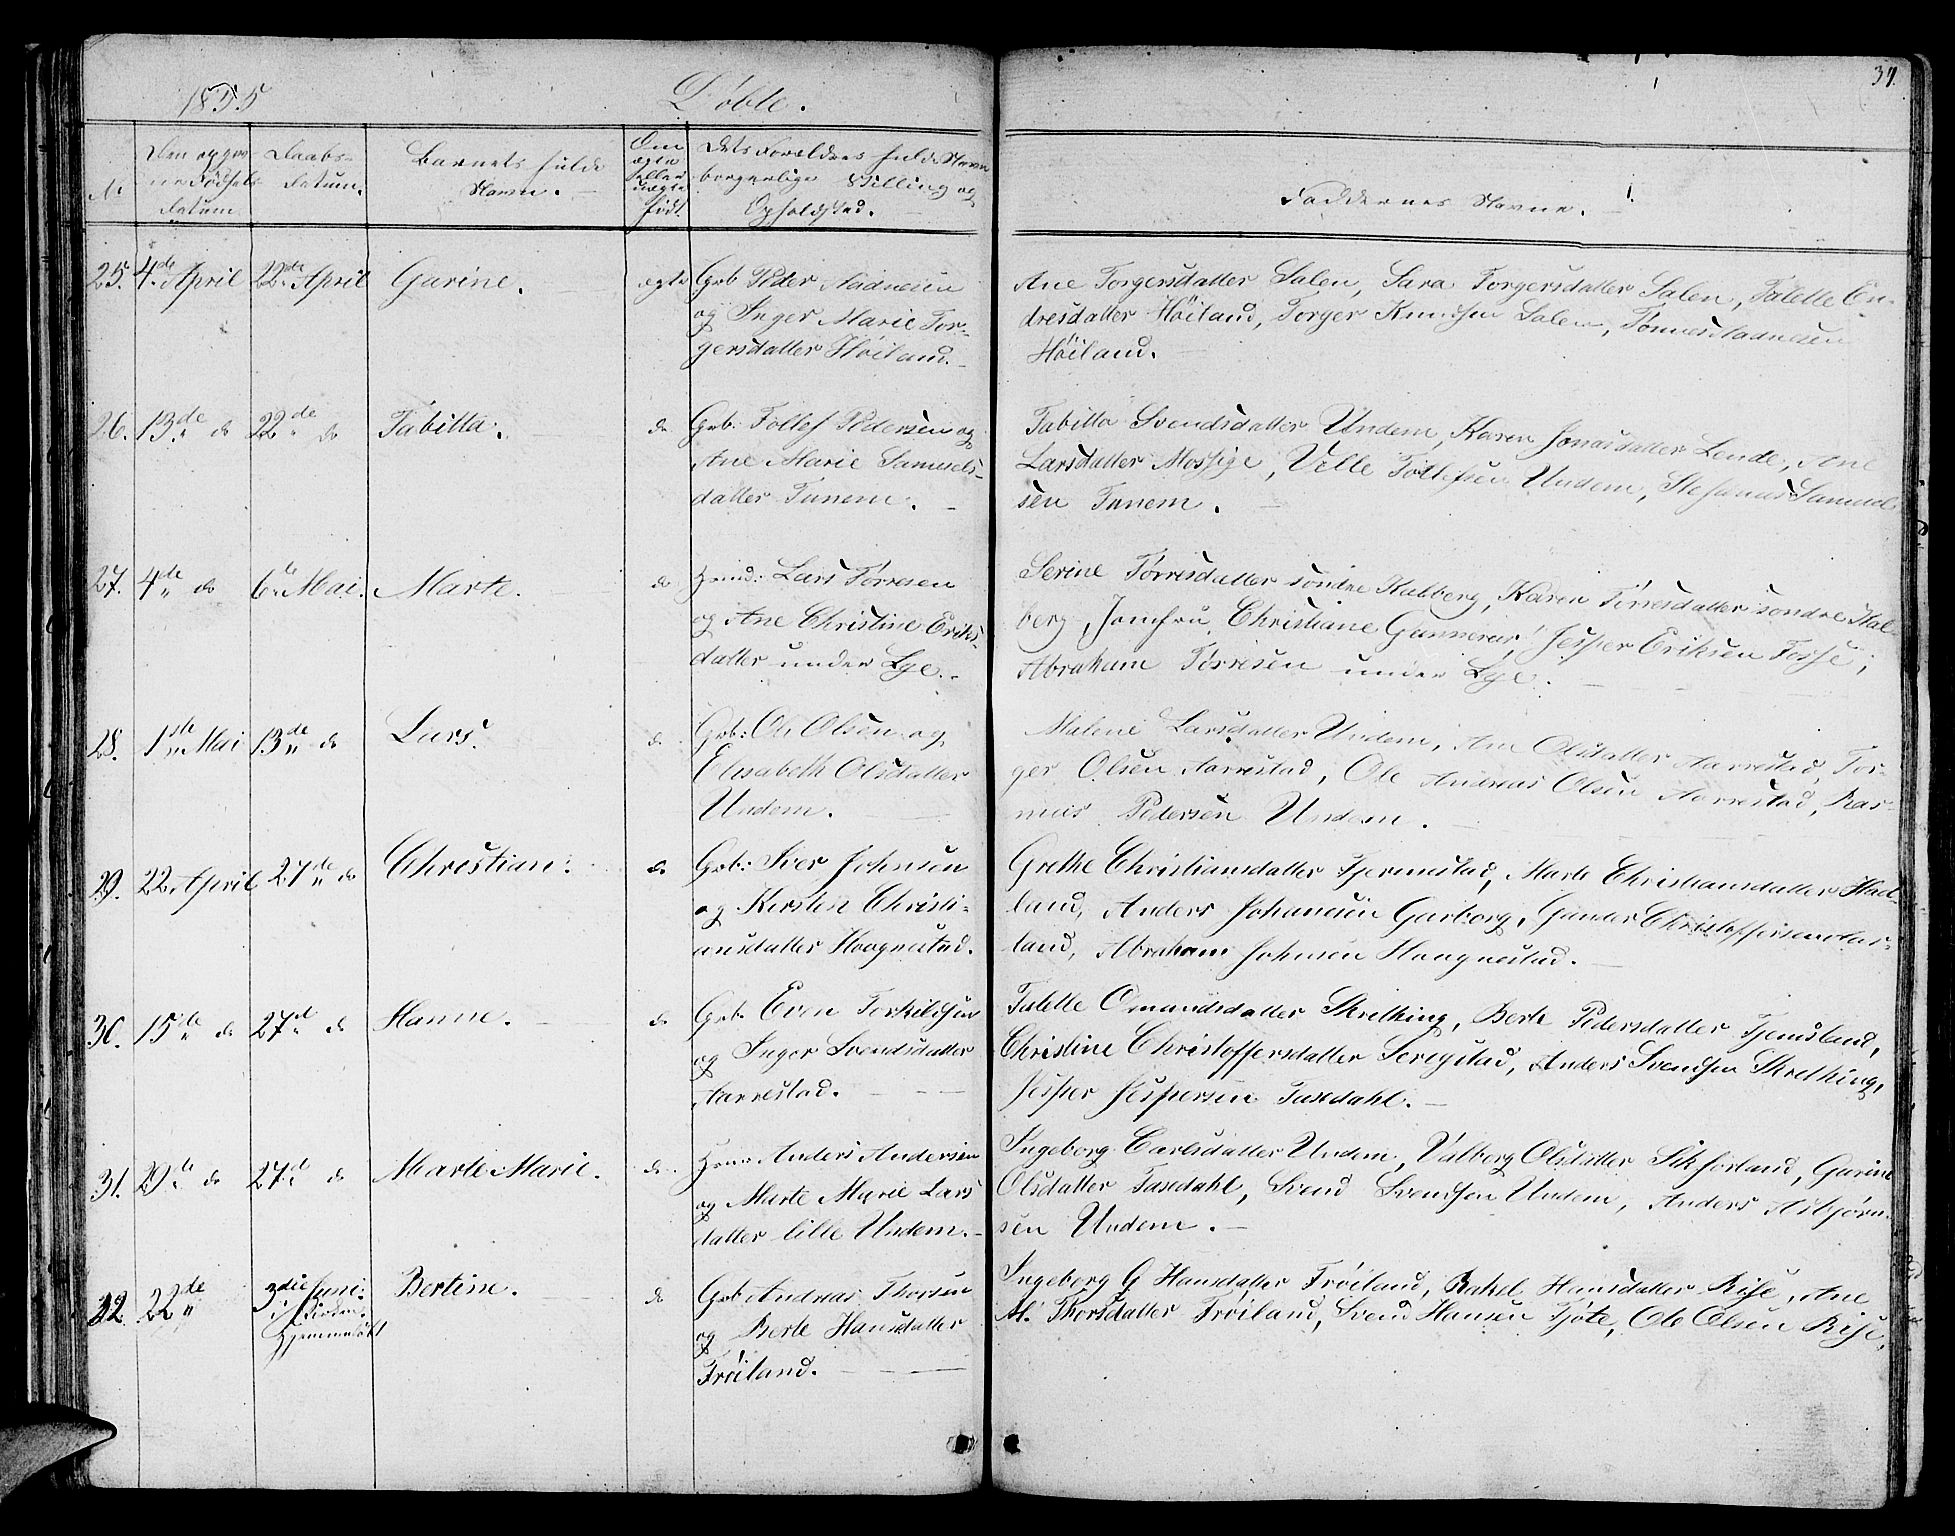 1855 Døbte. 37.
No Den opgivne Fødsels Datum Daabs-Datum. Barnets fulde Navn. Om ægte eller uægte født Dets Forældres fulde Navn borgerlige Stilling og Opholdsted. Faddernes Navne.
25. 4de April 22de April Garine. ægte Grb Peder Aadnesen
og Inger Marie Tor-
gersdatter Høiland.
Ane Torgersdatter Salen, Sara Torgersdatter Salen, Talette En-
dresdatter Høiland, Torger Knudsen Salen, Tønnes
Høiland.
26. 13de do 22de do Tabitta. do Grb: Tollef Pedersen og
Ane Marie Samuels-
datter Tunem.
Tabitta Svendsdatter Undem, Karen Jonasdatter Lende, Ane
Larsdatter Mossige, Velle Tollefsen Undem, Stefanus Samuel
sen Tunem.
27. 4de do 6te Mai. Marte. do Huusd: Lars Tørresen
og Ane Christine Eriks-
datter under Lye.
Serine Tørresdatter søndre Kalberg, Karen Tørresdatter søndre Kal-
berg, Jomfru Christiane Gunnerus, Jesper Eriksen Fosse,
Abraham Tørresen under Lye.
28. 1ste Mai 13de do Lars. do Grb: Ole Olsen og
Elisabeth Olsdatter
Undem.
Malene Larsdatter Undem, Ane Olsdatter Aarrestad, Tor-
ger Olsen Aarrestad, Ole Andreas Olsen Aarrestad, Ras-
mus Pedersen Undem.
29. 22. April 27de do Christian. do Grb: Iver Johnsen
og Kirsten Christi-
ansdatter Haagnestad.
Grethe Christiansdatter Fjermestad, Marte Christiansdatter Had-
land, Anders Johanesen Garborg, Gunder Christoffersen
land, Abraham Johnsen Haagnestad.
30. 15de do 27de do Hanne. do Grb. Even Torkildsen
og Inger Svendsdatter
Aarrestad.
Talette Omundsdatter Skretting, Berte Pedersdatter Tjemsland,
Christine Christoffersdatter Seregstad, Anders Svendsen Skretting,
Jesper Jespersen Tasedahl.
31. 29de do 27de do Marte Marie. do Huusm Anders Andersen
og Marte Marie Lars
datter lille Undem.
Ingeborg Carlsdatter Undem, Valborg Olsdatter Sikforland, Garine
Olsdatter Tasedahl, Svend Svendsen Undem, Anders Asbjørn-
sen Undem.
32. 22de 3die Juni i Kirken. Hjemmedøbt Bertine. do Grb Andreas Thorsen
og Berte Hansdatter
Frøiland.
Ingeborg G Hansdatter Frøiland, Rakel Hansdatter Rise, Ane
M. Thorsdatter Frøiland, Svend Hansen Tjøte, Ole Olsen Rise,